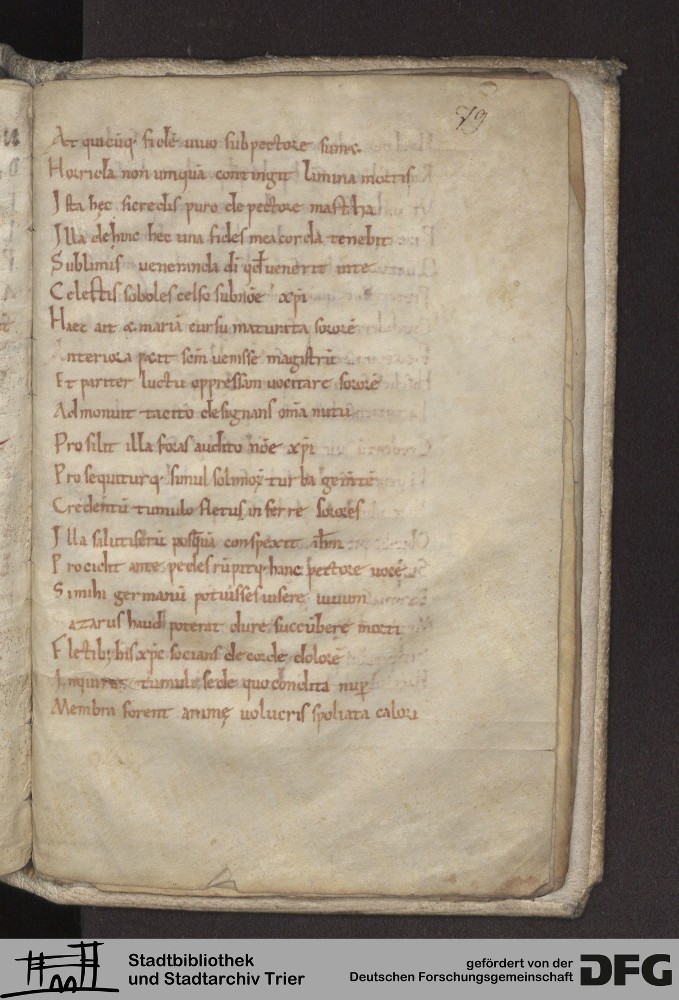 79
At quicūq; fidē uiuo subpectore sumēt
Horrida non umquā contingit limina mortis
Ista hęc sicredis puro depectore martha
Illa dehinc hęc una fides mea corda tenebit
Sublimis ueneranda dī qđ uenerit in te
Celestis soboles celso subnōe xp̄i
Haec ait & mariā cursu maturata sororē
Interiora petit sc̄m uenisse magistrū
Et pariter luctu oppressam uocitare sororē
Admonuit tacito designans om̄ia nutu
Prosilit illa foras audito nōe xp̄i
Prosequiturq; simul solimoꝝ turba gem̄tē
Credentū tumulo fletus inferre sorores
Illa salutiferū postquā conspexit ih̄m
Procidit ante pedes rūpitq; hanc pectore uocē
Si mihi germanū potuisses uisere uiuum
Lazarus haud poterat dure succūbere morti
Fletib; his xp̄c socians de corde dolorē
Inquirens tumuli sede quo condita nup̄
Membra forent animę uolucris spoliata calori
Stadtbibliothek
und Stadtarchiv Trier
gefördert von der
Deutschen Forschungsgemeinschaft
DFG